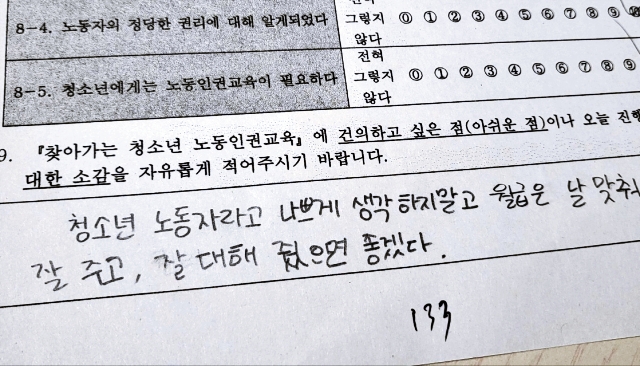 8-4. 노동자의 정당한 권리에 대해 알게되었다
그렇지
않다
⓪ ① ② ③ ④ ⑤ ⑥ ⑦ ⑧ ⑨ ⑩
8-5. 청소년에게는 노동인권교육이 필요하다
전혀
그렇지
않다
⓪ ① ② ③ ④ ⑤ ⑥ ⑦ ⑧ ⑨
9. 『찾아가는 청소년 노동인권교육』에 건의하고 싶은 점(아쉬운 점)이나 오늘 진행
대한 소감을 자유롭게 적어주시기 바랍니다.
청소년 노동자라고 나쁘게 생각하지말고 월급은 날 맞춰
잘 주고, 잘 대해 줬으면 좋겠다.
133